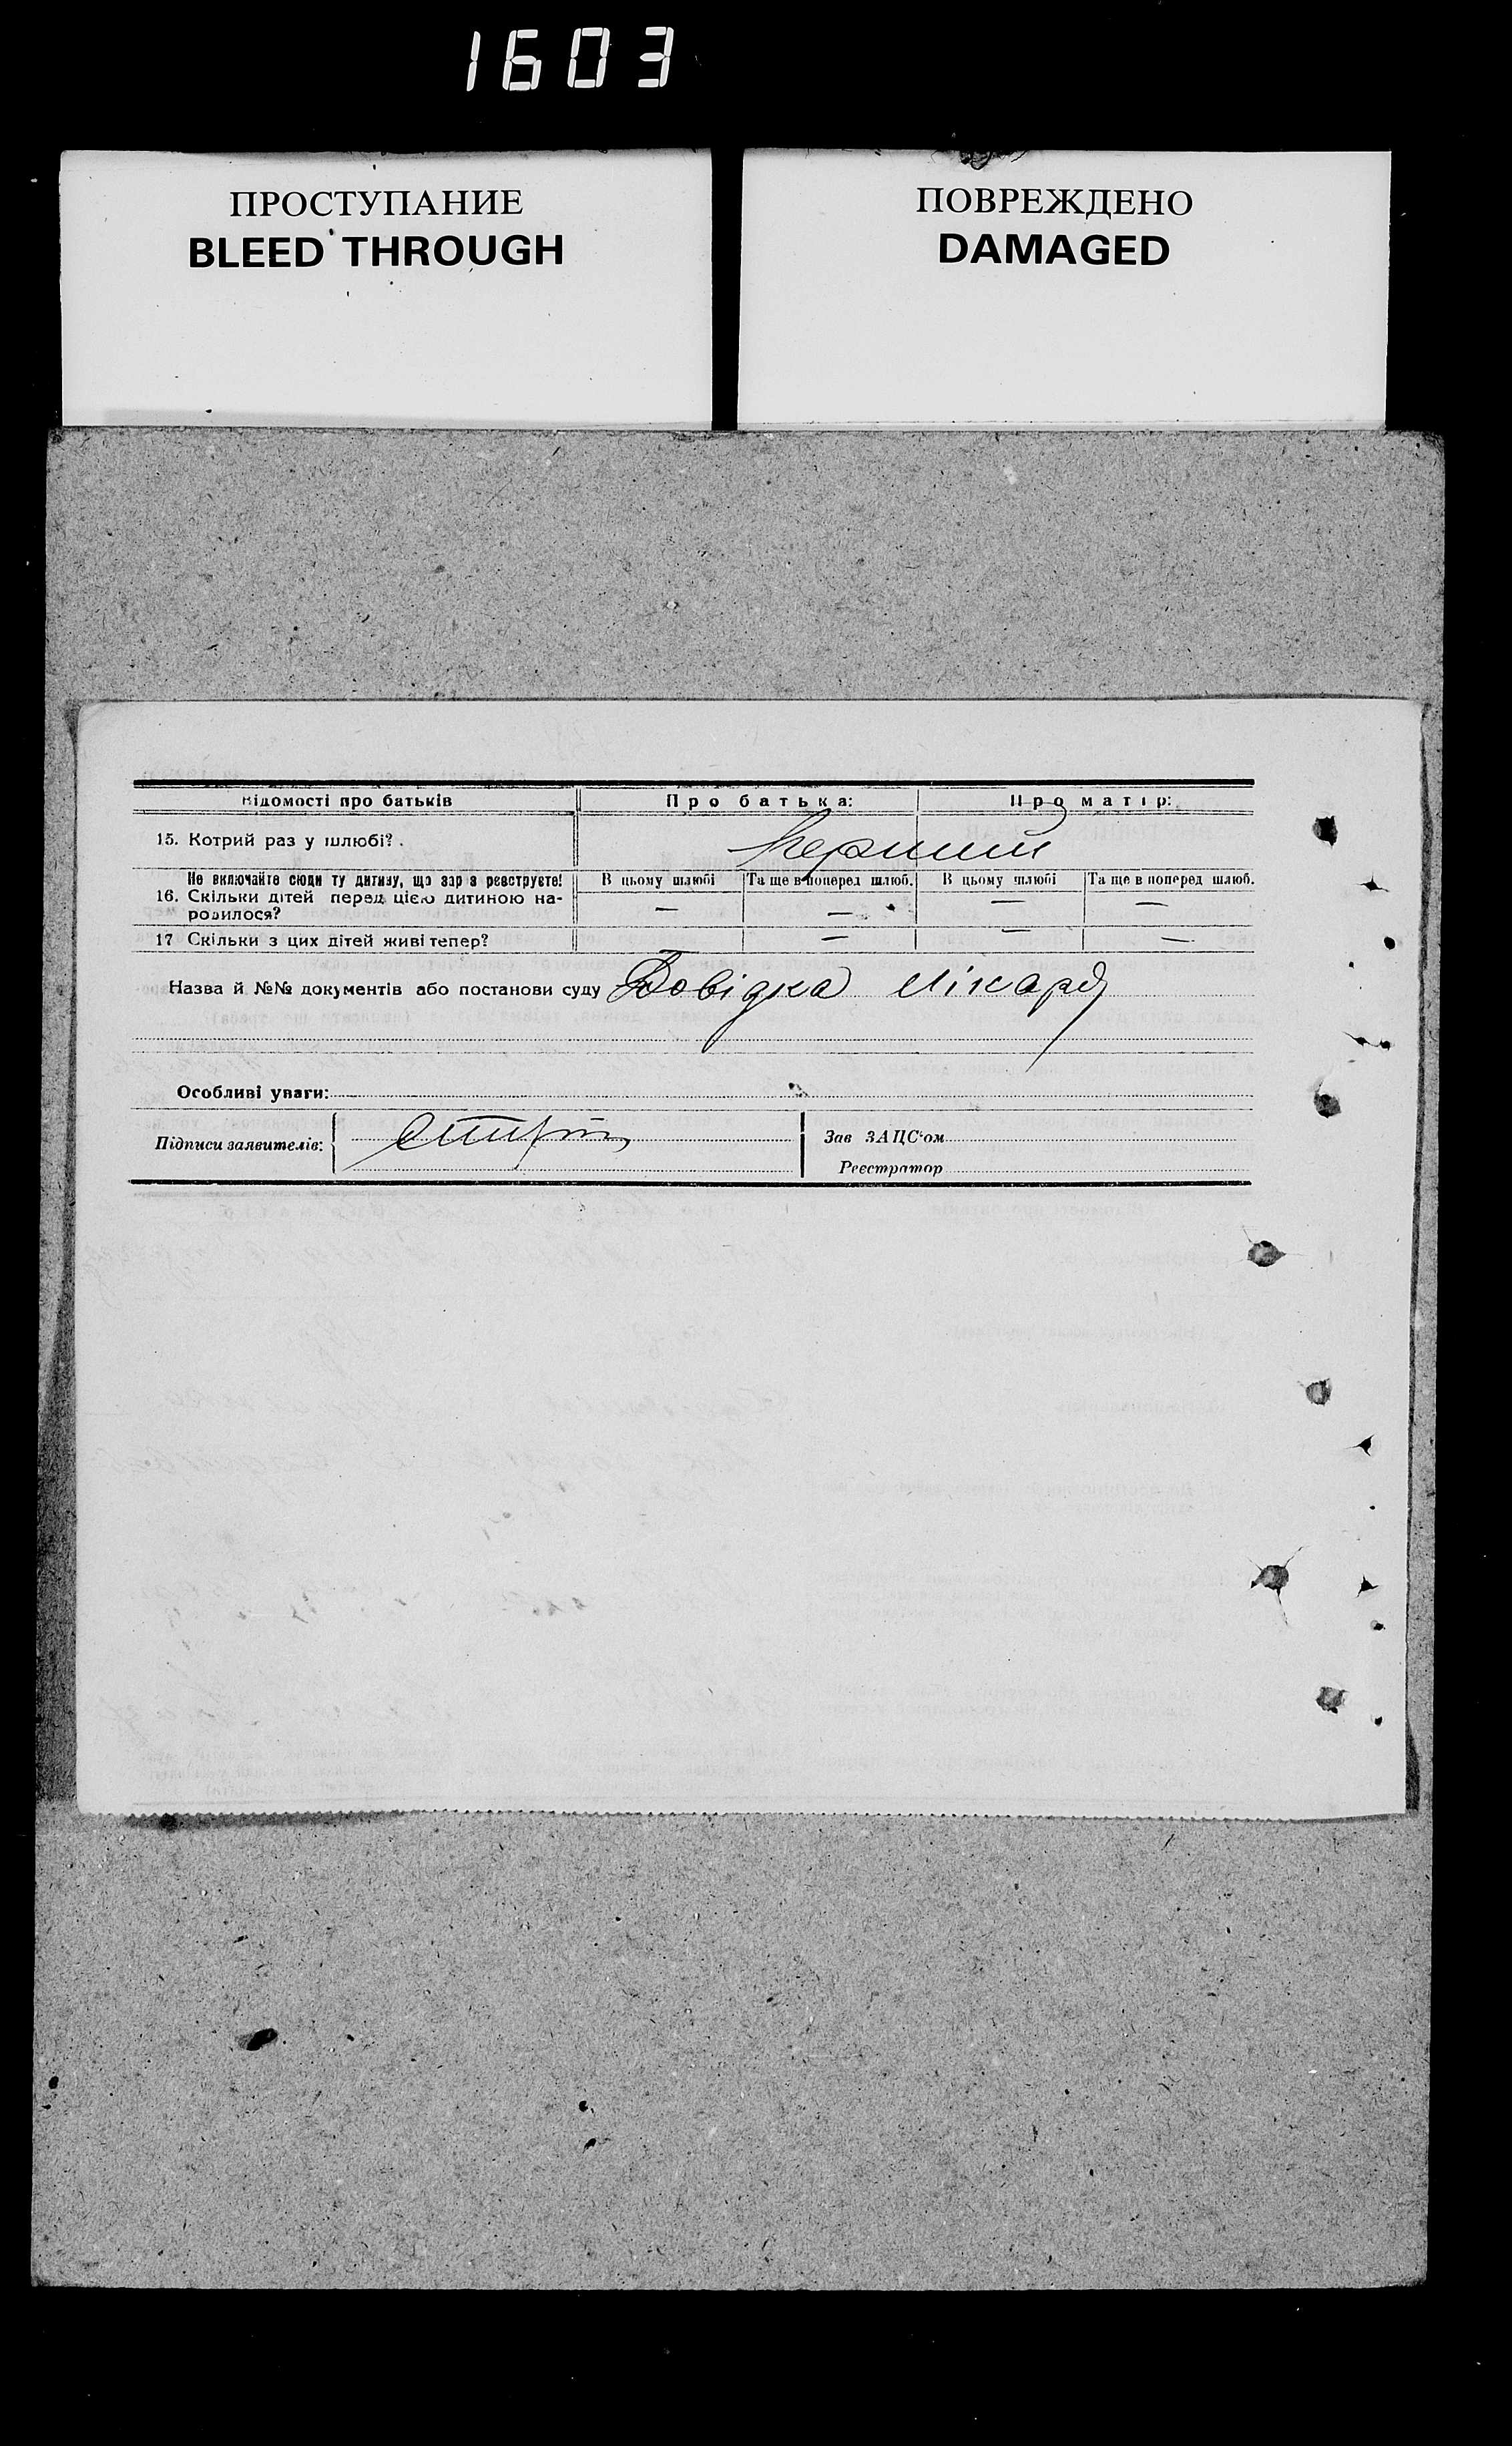 1603
ПРОСТУПАНИЕ
BLEED THROUGH
ПОВРЕЖДЕНО
DAMAGED
Відомості про батьків Про батька: Про матір:
15. Котрий раз у шлюбі? . перший
Не включайте сюди ту дитину, що зараз реєструєте!
16. Скільки дітей перед цією дитиною на-
родилося?
В цьому шлюбі Та ще в поперед шлюб. В цьому шлюбі Та ще в поперед шлюб.
— — — —
17 Скільки з цих дітей живі тепер? — — —
Назва й №№ документів або постанови суду Довідка лікаря
Особливі уваги:
Підписи заявителів:
Зав ЗАЦС'ом
Реєстратор